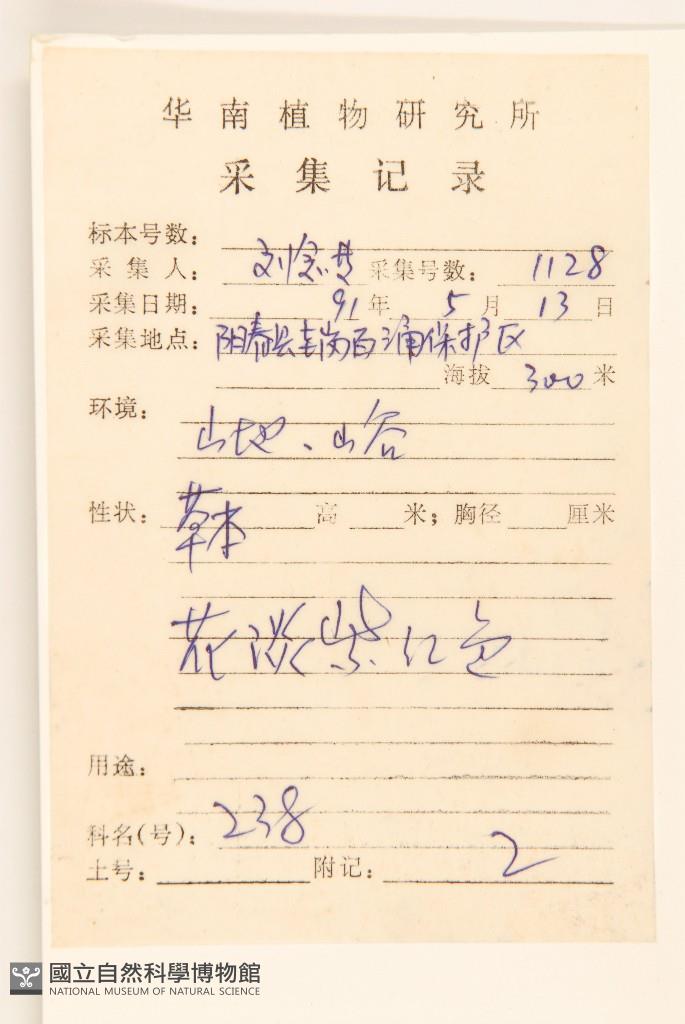 华南植物研究所
采集记录
标本号数：
采集人： 刘念 采集号数： 1128
采集日期： 91年 5月 13日
采集地点： 阳春县 岗百涌保护区
海拔 300 米
环境：
山地、山谷
性状： 草本 高 米；胸径 厘米
花淡紫红色
用途：
科名(号)： 238
土号： 附记： 2
國立自然科學博物館
NATIONAL MUSEUM OF NATURAL SCIENCE